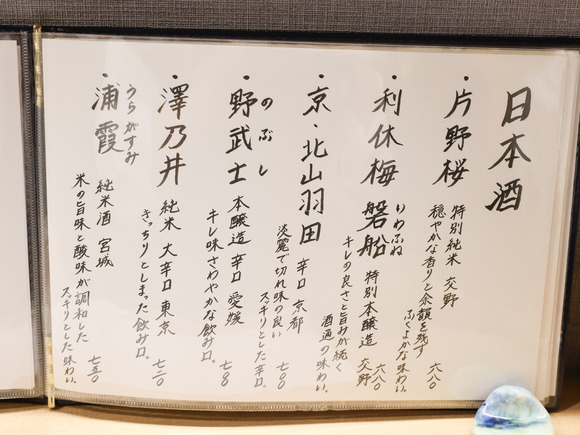 日本酒
・片野桜 特別純米 交野
穏やかな香りと余韻を残す
ふくよかな味わい 六八〇
・利休梅 磐船 特別本醸造 交野
いわふね
キレの良さと旨みが続く
酒通の味わい 六八〇
・京・北山羽田 辛口 京都
淡麗で切れ味の良い
スッキリとした辛口。 七〇〇
・野武士 本醸造 辛口 愛媛
のぶし
キレ味さわやかな飲み口。 七〇〇
・澤乃井 純米 大辛口 東京
きっちりとしまった飲み口。 七二〇
・浦霞 純米酒 宮城
うらがすみ
米の旨味と酸味が調和した
スッキリとした味わい。 七五〇